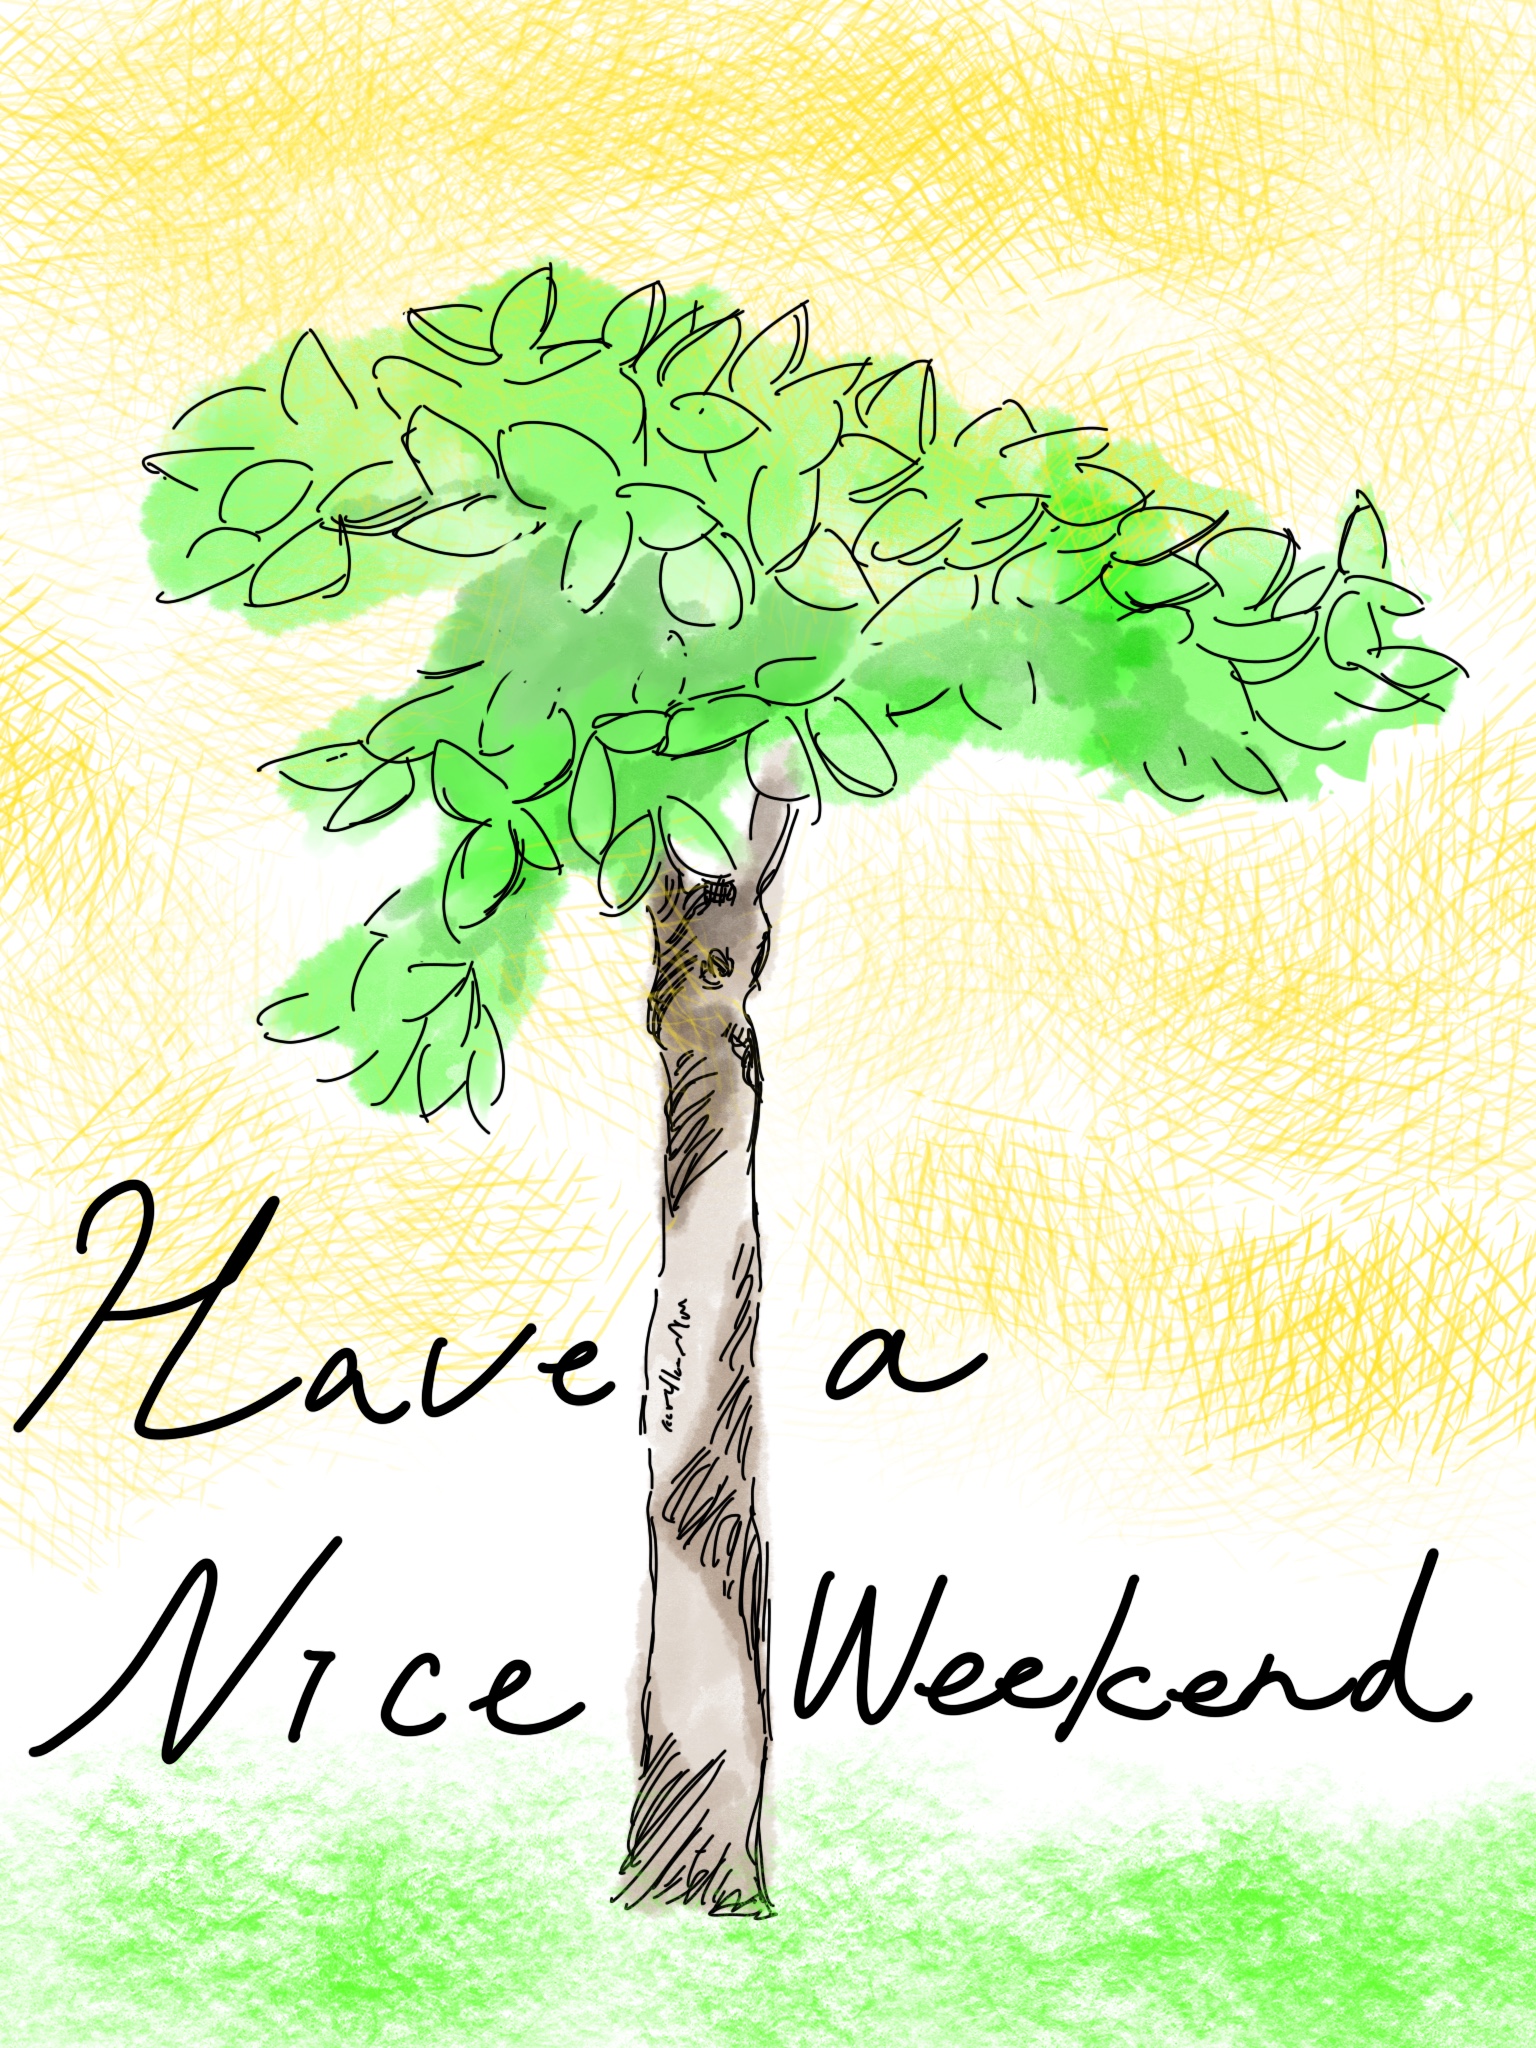 Have a
Nice Weekend